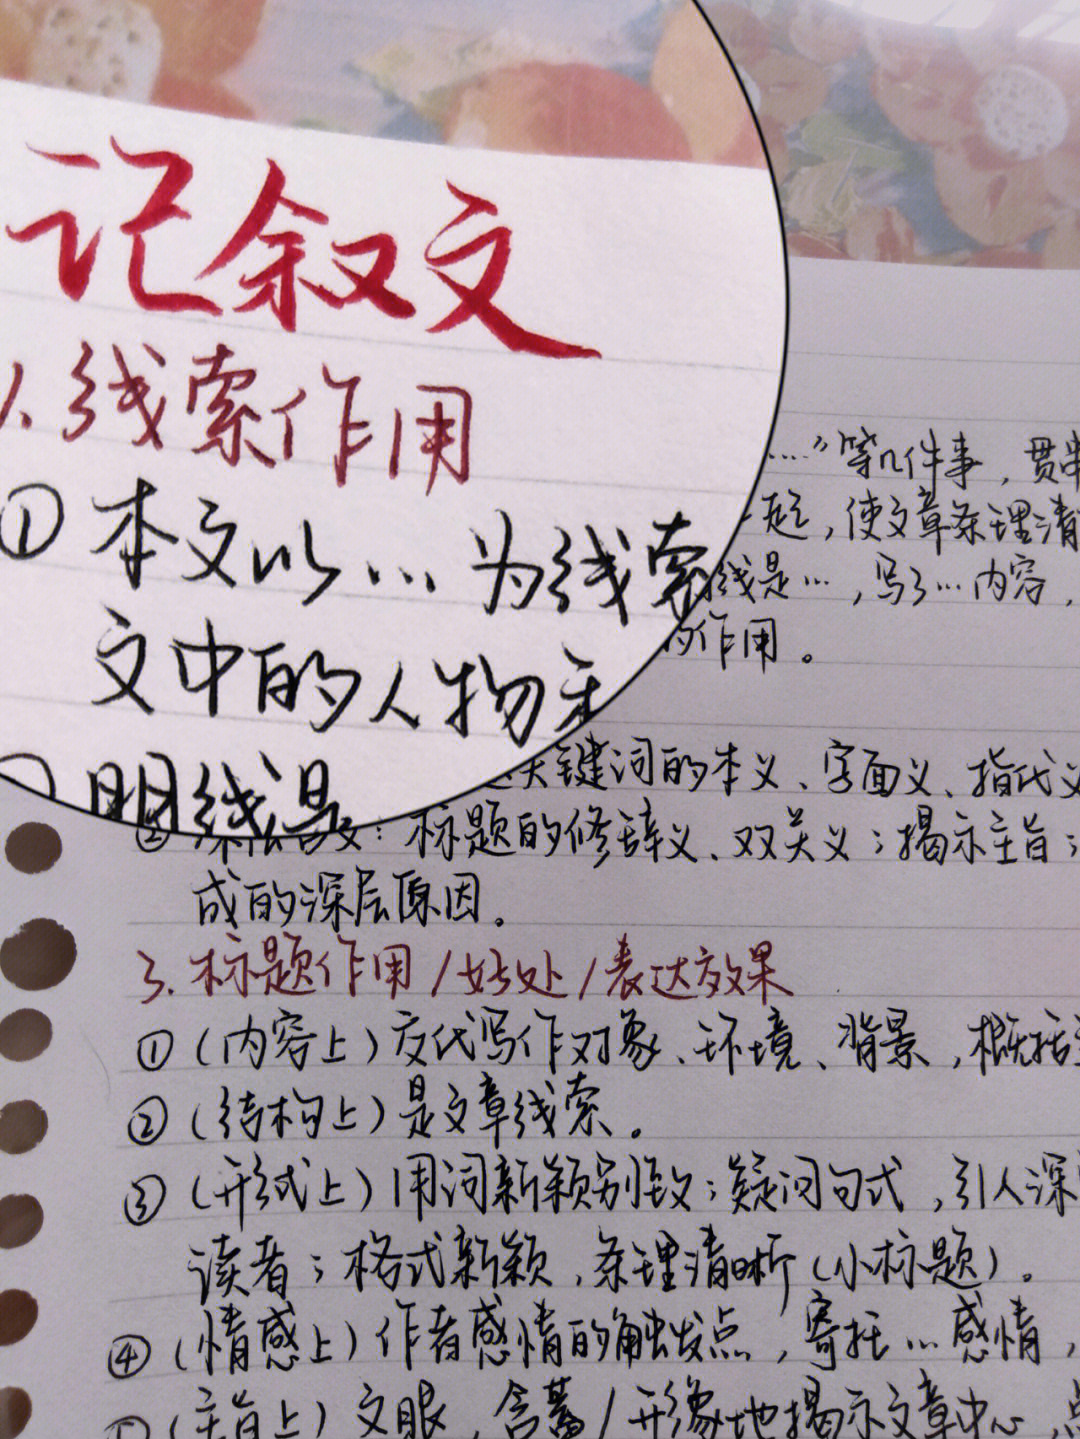 记叙文
1.线索作用
①本文以…为线索
文中的人物和
明线是
……”等几件事，贯串
一起，使文章条理清
线是…，写了…内容，
的作用。
关键词的本义、字面义、指代义
② 标题的修辞义、双关义；揭示主旨；
成的深层原因。
3.标题作用/好处/表达效果
①(内容上)交代写作对象、环境、背景，概括
②(结构上)是文章线索。
③(形式上)用词新颖别致；疑问句式，引人深
读者；格式新颖，条理清晰(小标题)。
④(情感上)作者感情的触发点，寄托…感情，
(主旨上)文眼，含蓄/形象地揭示文章中心，点